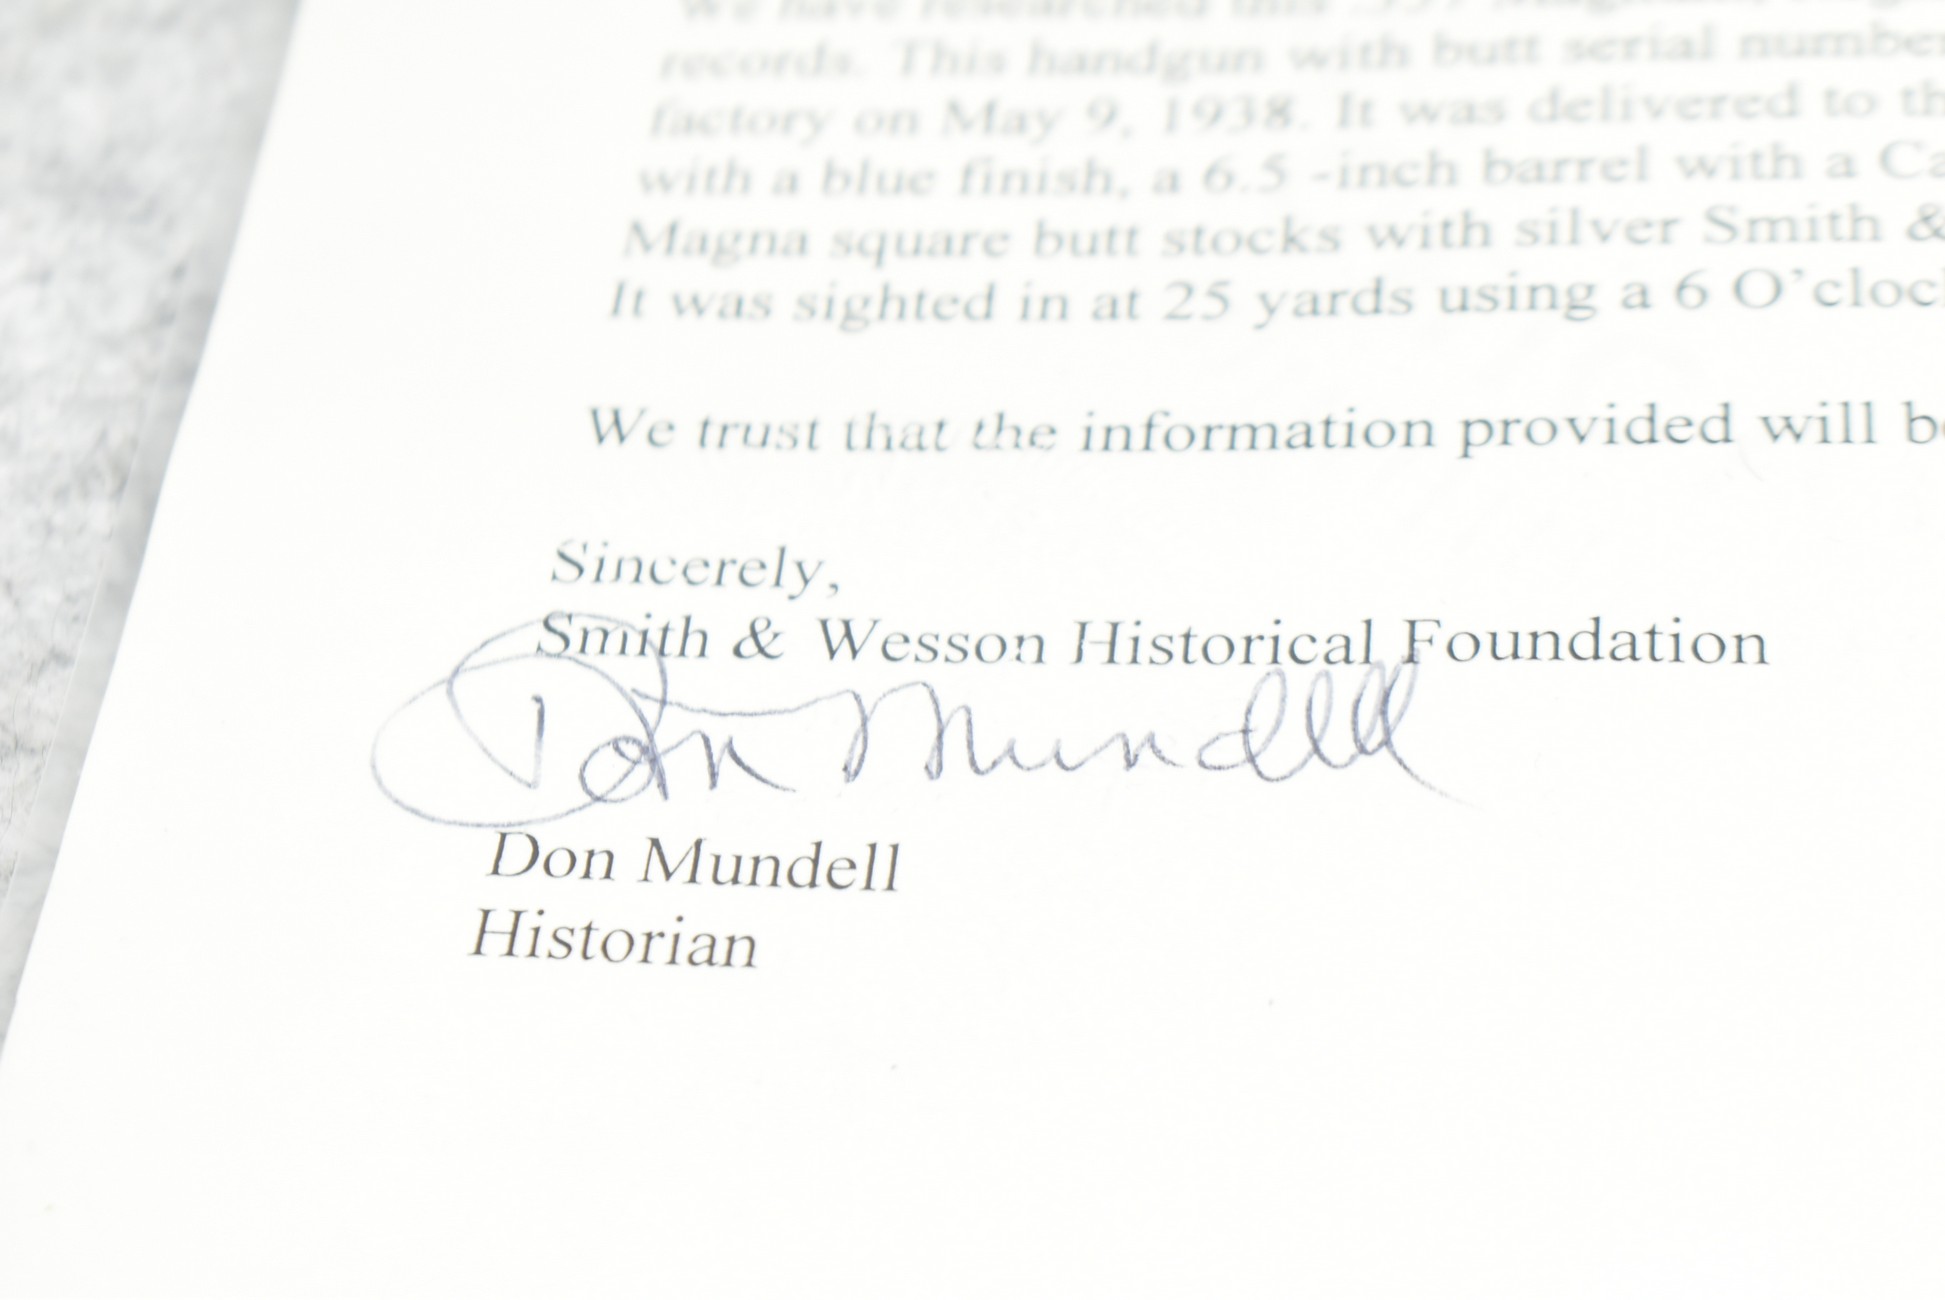 We have researched this .357 Magnum,
records. This handgun with butt serial number
factory on May 9, 1938. It was delivered to th
with a blue finish, a 6.5 -inch barrel with a Ca
Magna square butt stocks with silver Smith &
It was sighted in at 25 yards using a 6 O'cloc
We trust that the information provided will be
Sincerely,
Smith & Wesson Historical Foundation
Don Mundell
Don Mundell
Historian